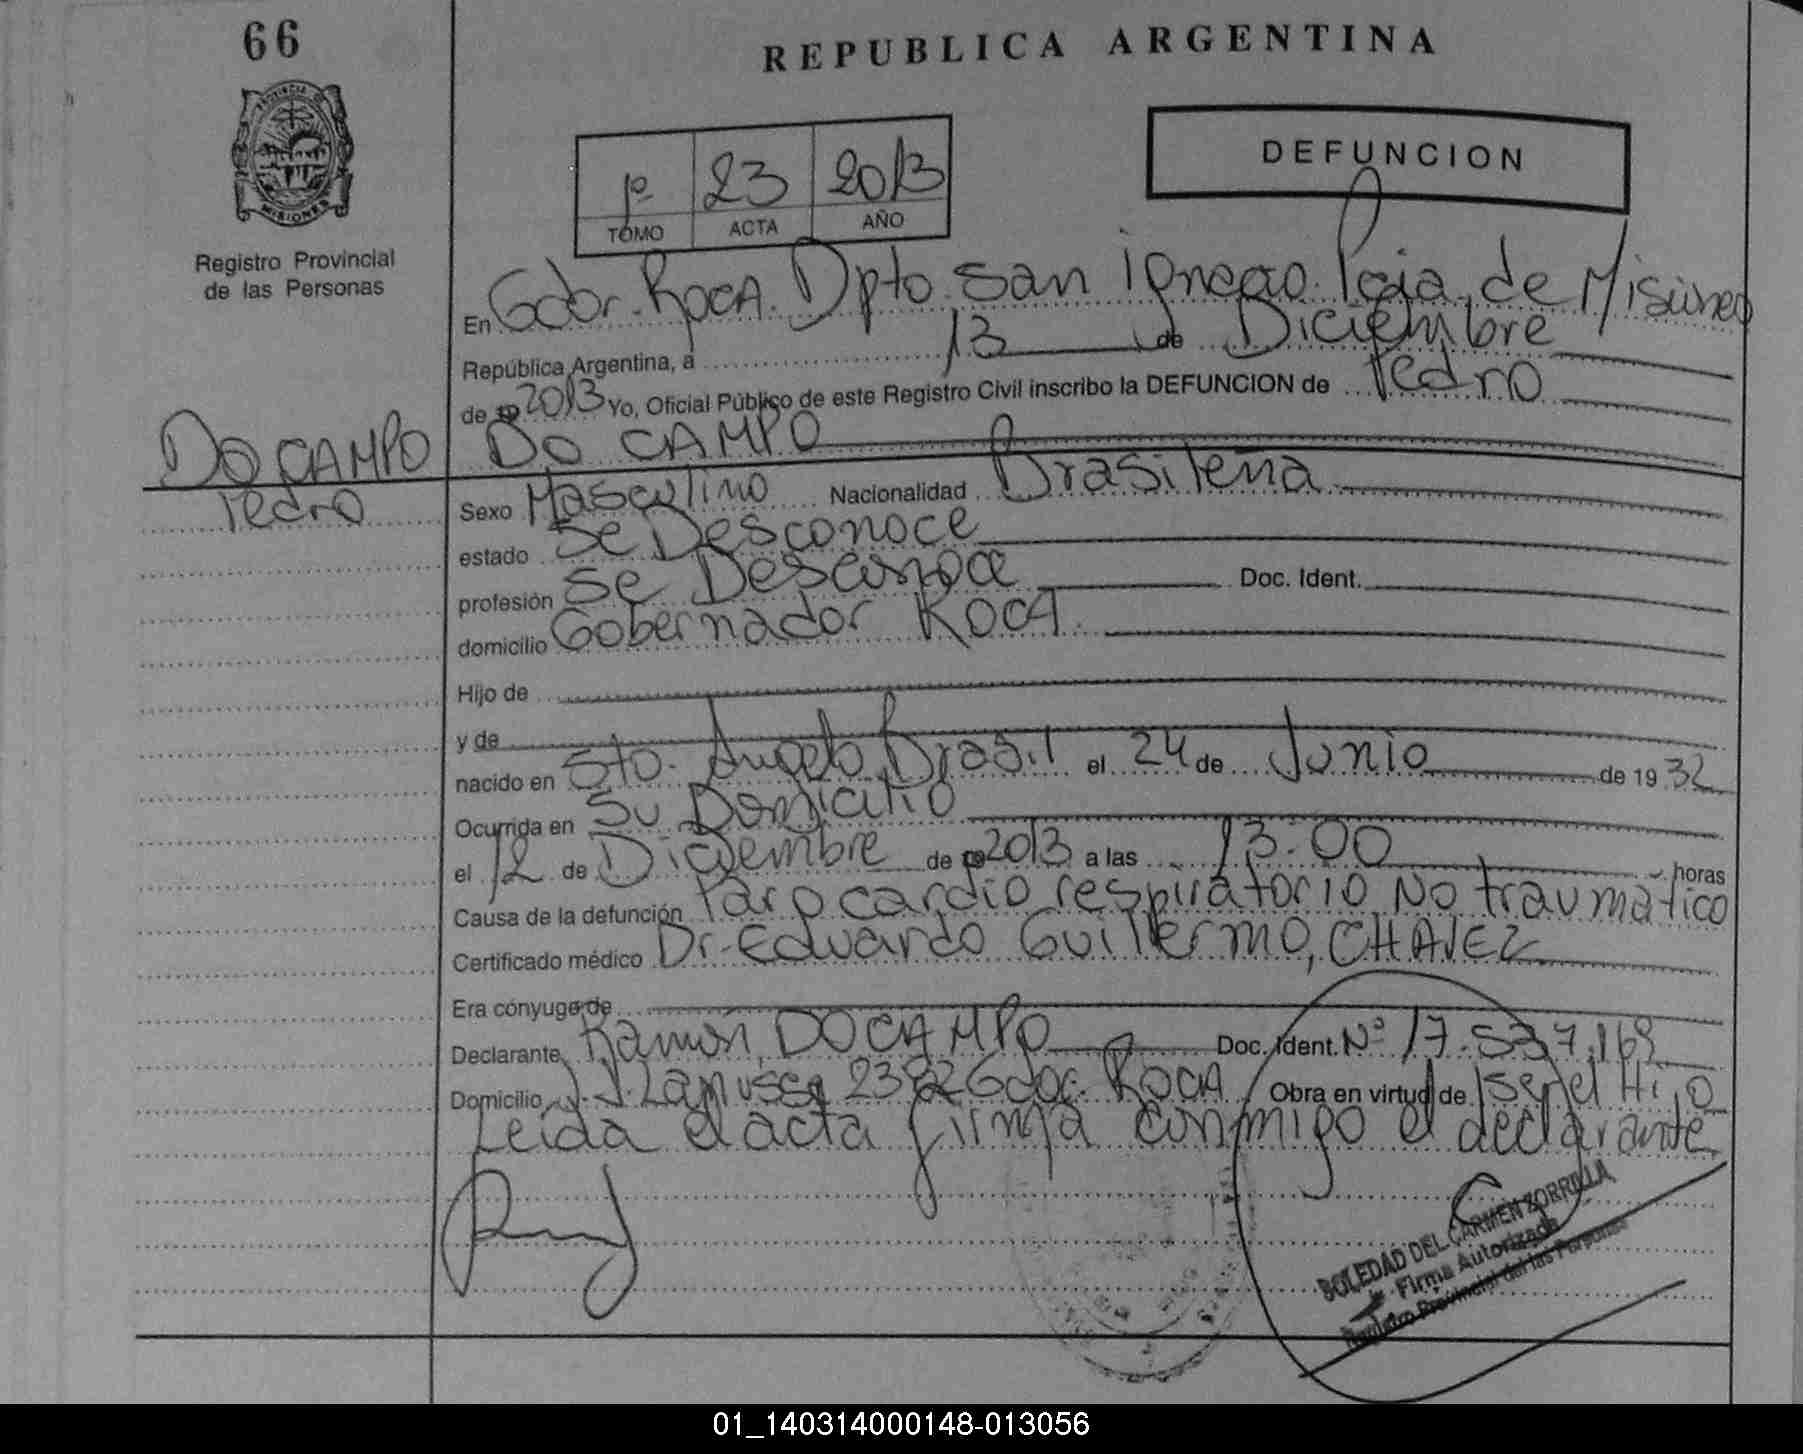 66
REPUBLICA ARGENTINA
PROVINCIA DE
MISIONES
Registro Provincial
de las Personas
DEFUNCION
1º 23 2013
TOMO ACTA AÑO
En Gdor. Roca. Dpto San Ignacio. Pcia. de Misiones
República Argentina, a 13 de Diciembre
de 2013 Yo, Oficial Público de este Registro Civil inscribo la DEFUNCION de Pedro
DO CAMPO
DO CAMPO
Pedro
Sexo Masculino Nacionalidad Brasileña
estado Se Desconoce
profesión Se Desconoce Doc. Ident.
domicilio Gobernador Roca.
Hijo de
y de
nacido en Sto. Angelo Brasil el 24 de Junio de 1932
Ocurrida en Su Domicilio
el 12 de Diciembre de 2013 a las 13:00 horas
Causa de la defunción Paro cardio respiratorio No traumatico
Certificado médico Dr. Eduardo Guillermo, CHAVEZ
Era cónyuge de
Declarante Ramón DO CAMPO Doc. Ident. Nº 17.537.169
Domicilio Gdor. Roca Obra en virtud de Ser el Hijo
Leida el acta firma conmigo el declarante
SOLEDAD DEL CARMEN ZORRILLA
Firma Autorizada
Registro Provincial de las Personas
01_140314000148-013056